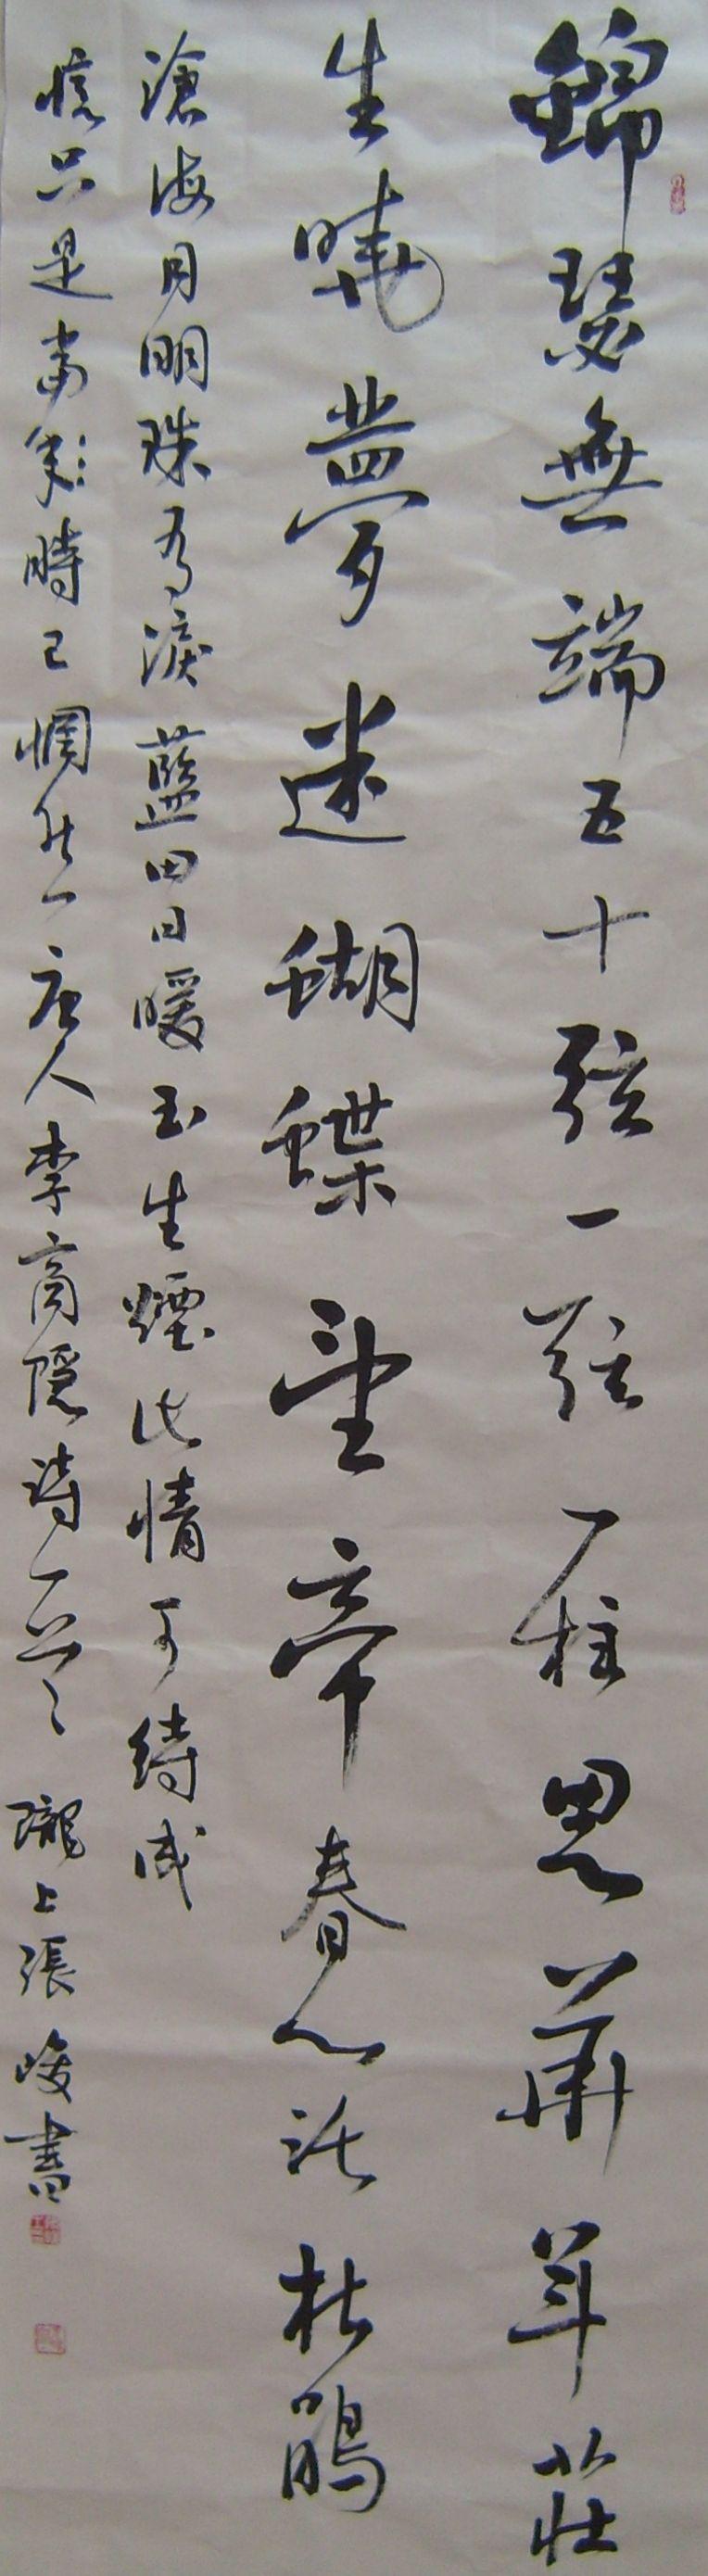 錦瑟無端五十弦一弦一柱思華年莊
生曉夢迷蝴蝶望帝春心託杜鵑
滄海月明珠有淚藍田日暖玉生煙此情可待成
憶只是當年時已惘然唐人李商隱詩一首 隴上張峻書